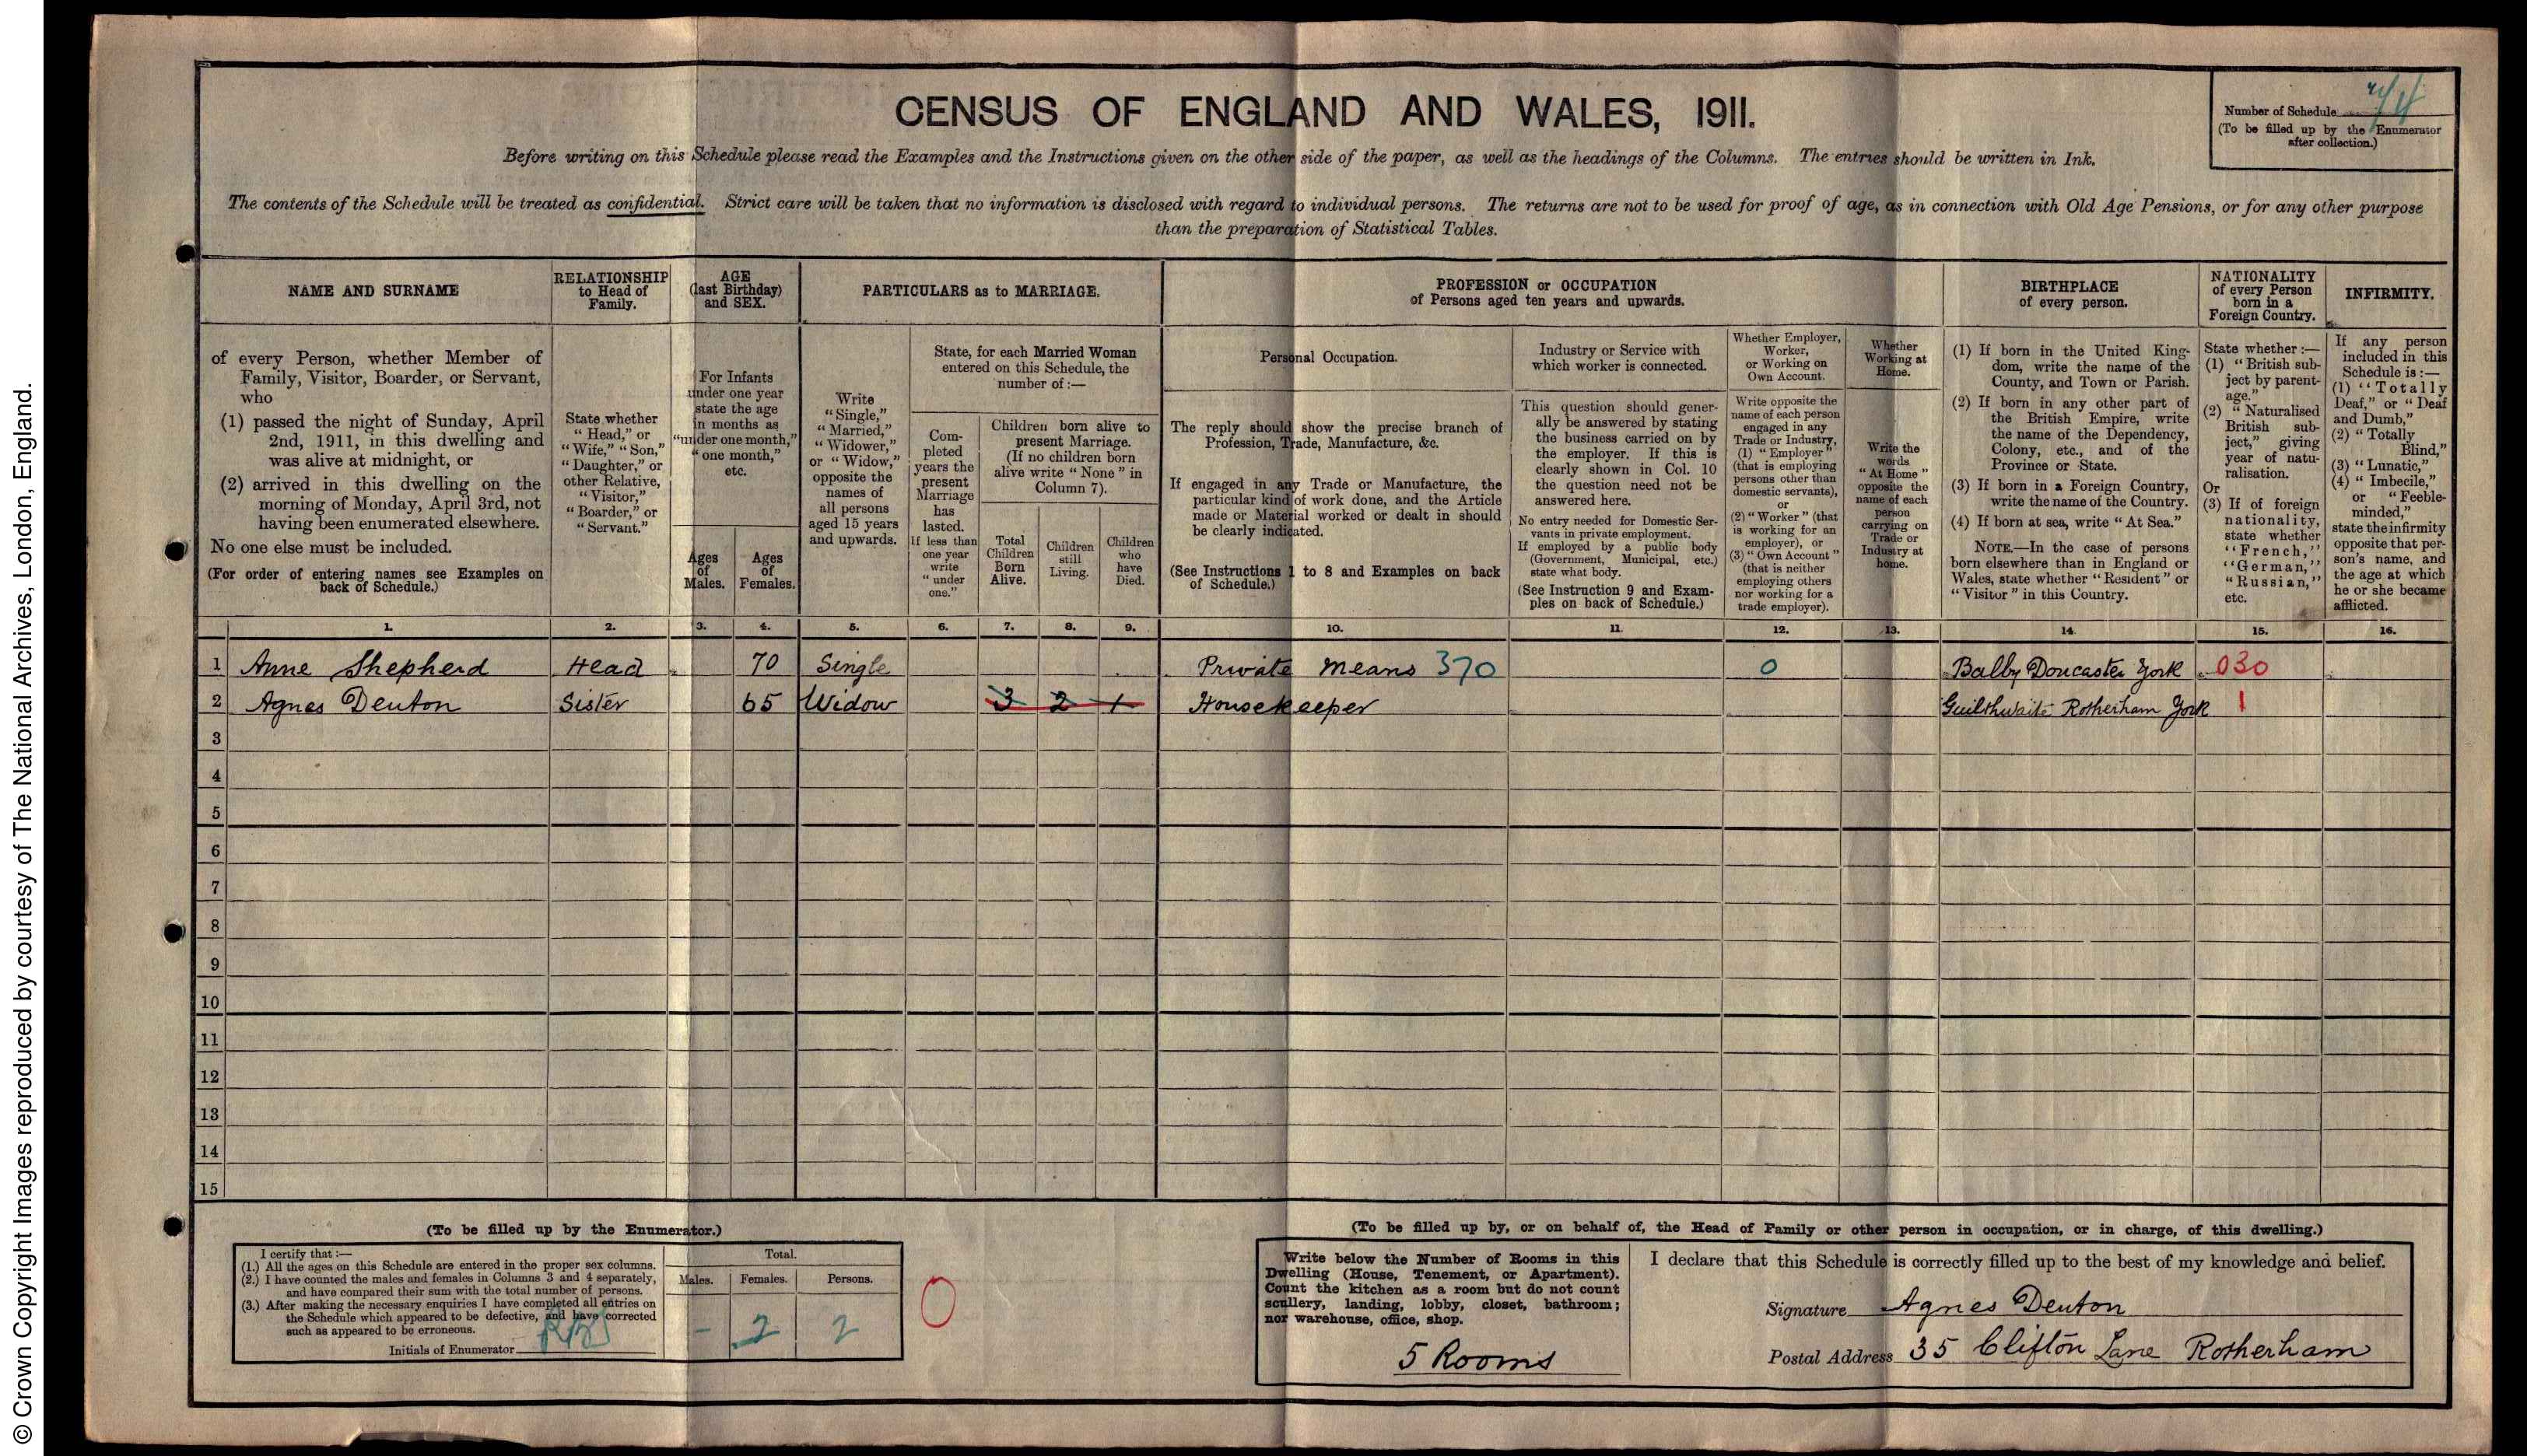 © Crown Copyright Images reproduced by courtesy of The National Archives, London, England.
CENSUS OF ENGLAND AND WALES, 1911.
Number of Schedule
(To be filled up by the Enumerator
after collection.)
Before writing on this Schedule please read the Examples and the Instructions given on the other side of the paper, as well as the headings of the Columns. The entries should be written in Ink.
The contents of the Schedule will be treated as confidential. Strict care will be taken that no information is disclosed with regard to individual persons. The returns are not to be used for proof of age, as in connection with Old Age Pensions, or for any other purpose
than the preparation of Statistical Tables.
NAME AND SURNAME
of every Person, whether Member of
Family, Visitor, Boarder, or Servant,
who
(1) passed the night of Sunday, April
2nd, 1911, in this dwelling and
was alive at midnight, or
(2) arrived in this dwelling on the
morning of Monday, April 3rd, not
having been enumerated elsewhere.
No one else must be included.
(For order of entering names see Examples on
back of Schedule.)
RELATIONSHIP
to Head of
Family.
State whether
"Head," or
"Wife," "Son,"
"Daughter," or
other Relative,
"Visitor,"
"Boarder," or
"Servant."
AGE
(last Birthday)
and SEX.
For Infants
under one year
state the age
in months as
"under one month,"
"one month,"
etc.
Ages
of
Males.
Ages
of
Females.
PARTICULARS as to MARRIAGE.
Write
"Single,"
"Married,"
"Widower,"
or "Widow,"
opposite the
names of
all persons
aged 15 years
and upwards.
State, for each Married Woman
entered on this Schedule, the
number of :—
Com-
pleted
years the
present
Marriage
has
lasted.
If less than
one year
write
"under
one."
Children born alive to
present Marriage.
(If no children born
alive write "None" in
Column 7).
Total
Children
Born
Alive.
Children
still
Living.
Children
who
have
Died.
PROFESSION or OCCUPATION
of Persons aged ten years and upwards.
Personal Occupation.
The reply should show the precise branch of
Profession, Trade, Manufacture, &c.
If engaged in any Trade or Manufacture, the
particular kind of work done, and the Article
made or Material worked or dealt in should
be clearly indicated.
(See Instructions 1 to 8 and Examples on back
of Schedule.)
Industry or Service with
which worker is connected.
This question should gener-
ally be answered by stating
the business carried on by
the employer. If this is
clearly shown in Col. 10
the question need not be
answered here.
No entry needed for Domestic Ser-
vants in private employment.
If employed by a public body
(Government, Municipal, etc.)
state what body.
(See Instruction 9 and Exam-
ples on back of Schedule.)
Whether Employer,
Worker,
or Working on
Own Account.
Write opposite the
name of each person
engaged in any
Trade or Industry,
(1) "Employer"
(that is employing
persons other than
domestic servants),
or
(2) "Worker" (that
is working for an
employer), or
(3) "Own Account"
(that is neither
employing others
nor working for a
trade employer).
Whether
Working at
Home.
Write the
words
"At Home"
opposite the
name of each
person
carrying on
Trade or
Industry at
home.
BIRTHPLACE
of every person.
(1) If born in the United King-
dom, write the name of the
County, and Town or Parish.
(2) If born in any other part of
the British Empire, write
the name of the Dependency,
Colony, etc., and of the
Province or State.
(3) If born in a Foreign Country,
write the name of the Country.
(4) If born at sea, write "At Sea."
NOTE.—In the case of persons
born elsewhere than in England or
Wales, state whether "Resident" or
"Visitor" in this Country.
NATIONALITY
of every Person
born in a
Foreign Country.
State whether :—
(1) "British sub-
ject by parent-
age."
(2) "Naturalised
British sub-
ject," giving
year of natu-
ralisation.
Or
(3) If of foreign
nationality,
state whether
"French,"
"German,"
"Russian,"
etc.
INFIRMITY.
If any person
included in this
Schedule is :—
(1) "Totally
Deaf," or "Deaf
and Dumb,"
(2) "Totally
Blind,"
(3) "Lunatic,"
(4) "Imbecile,"
or "Feeble-
minded,"
state the infirmity
opposite that per-
son's name, and
the age at which
he or she became
afflicted.
1. 2. 3. 4. 5. 6. 7. 8. 9. 10. 11. 12. 13. 14. 15. 16.
1 Anne Shepherd Head 70 Single Private Means 370 0 Balby Doncaster York 030
2 Agnes Denton Sister 65 Widow 3 2 1 Housekeeper Guilthwaite Rotherham York 1
3
4
5
6
7
8
9
10
11
12
13
14
15
(To be filled up by the Enumerator.)
I certify that :—
(1.) All the ages on this Schedule are entered in the proper sex columns.
(2.) I have counted the males and females in Columns 3 and 4 separately,
and have compared their sum with the total number of persons.
(3.) After making the necessary enquiries I have completed all entries on
the Schedule which appeared to be defective, and have corrected
such as appeared to be erroneous.
Initials of Enumerator
Total.
Males. Females. Persons.
- 2 2
0
(To be filled up by, or on behalf of, the Head of Family or other person in occupation, or in charge, of this dwelling.)
Write below the Number of Rooms in this
Dwelling (House, Tenement, or Apartment).
Count the kitchen as a room but do not count
scullery, landing, lobby, closet, bathroom;
nor warehouse, office, shop.
5 Rooms
I declare that this Schedule is correctly filled up to the best of my knowledge and belief.
Signature Agnes Denton
Postal Address 35 Clifton Lane Rotherham